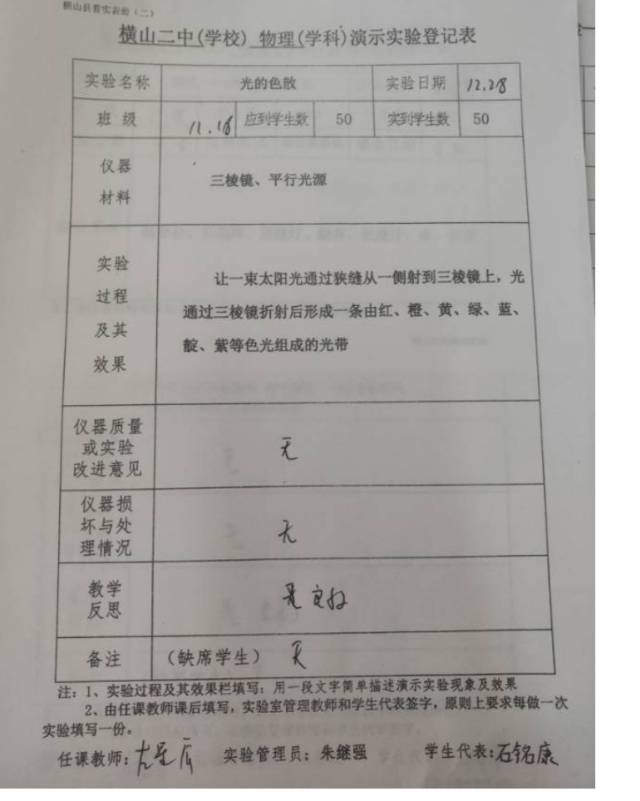 横山县普实表
横山二中(学校) 物理(学科)演示实验登记表
实验名称 光的色散 实验日期 12.28
班 级 11.18 应到学生数 50 实到学生数 50
仪器
材料
三棱镜、平行光源
实验
过程
及其
效果
让一束太阳光通过狭缝从一侧射到三棱镜上，光
通过三棱镜折射后形成一条由红、橙、黄、绿、蓝、
靛、紫等色光组成的光带
仪器质量
或实验
改进意见
无
仪器损
坏与处
理情况
无
教学
反思
良好
备注 (缺席学生) 无
注：1、实验过程及其效果栏填写：用一段文字简单描述演示实验现象及效果
2、由任课教师课后填写，实验室管理教师和学生代表签字，原则上要求每做一次
实验填写一份。
任课教师: 实验管理员：朱继强 学生代表:石铭康